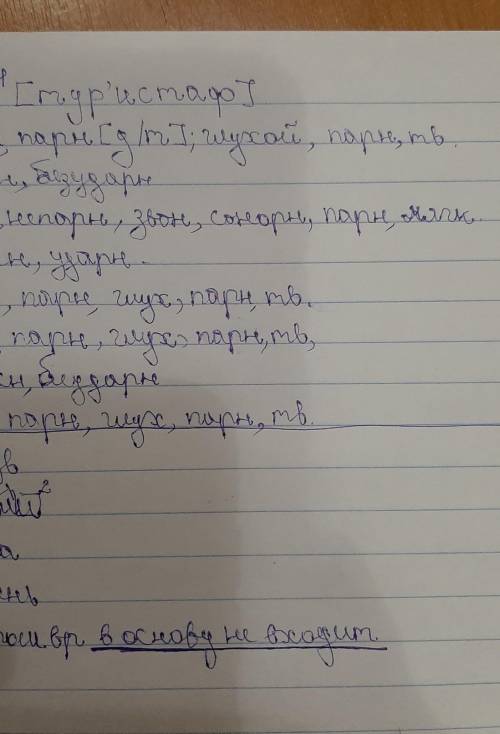 [тур'истаф]
, парн [д/т]; глухой, парн, тв.
н, безударн
непарн, звон, сонорн, парн, мягк.
н, ударн.
, парн, глух, парн, тв.
, парн, глух, парн, тв,
сн, безударн
парн, глух, парн, тв.
зв
а
ень
в основу не входит.